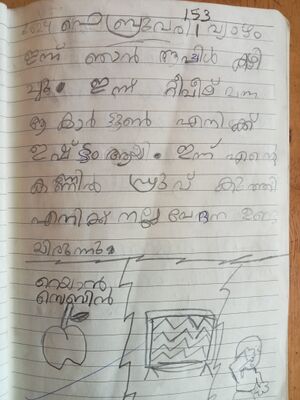 2024 ഫെബ്രുവരി 1 വ്യാഴം
ഇന്ന് ഞാൻ ആപ്പിൾ കഴി
ച്ചു. ഇന്ന് ടീവീല് വന്ന
ആ കാർട്ടൂൺ എനിക്ക്
ഇഷ്ട്ടം ആയി. ഇന്ന് എന്റെ
കണ്ണിൽ പ്രാവ് കുത്തി
എനിക്ക് നല്ല വേദന ഉണ്ട
യിരുന്നു.
സെബിൻ